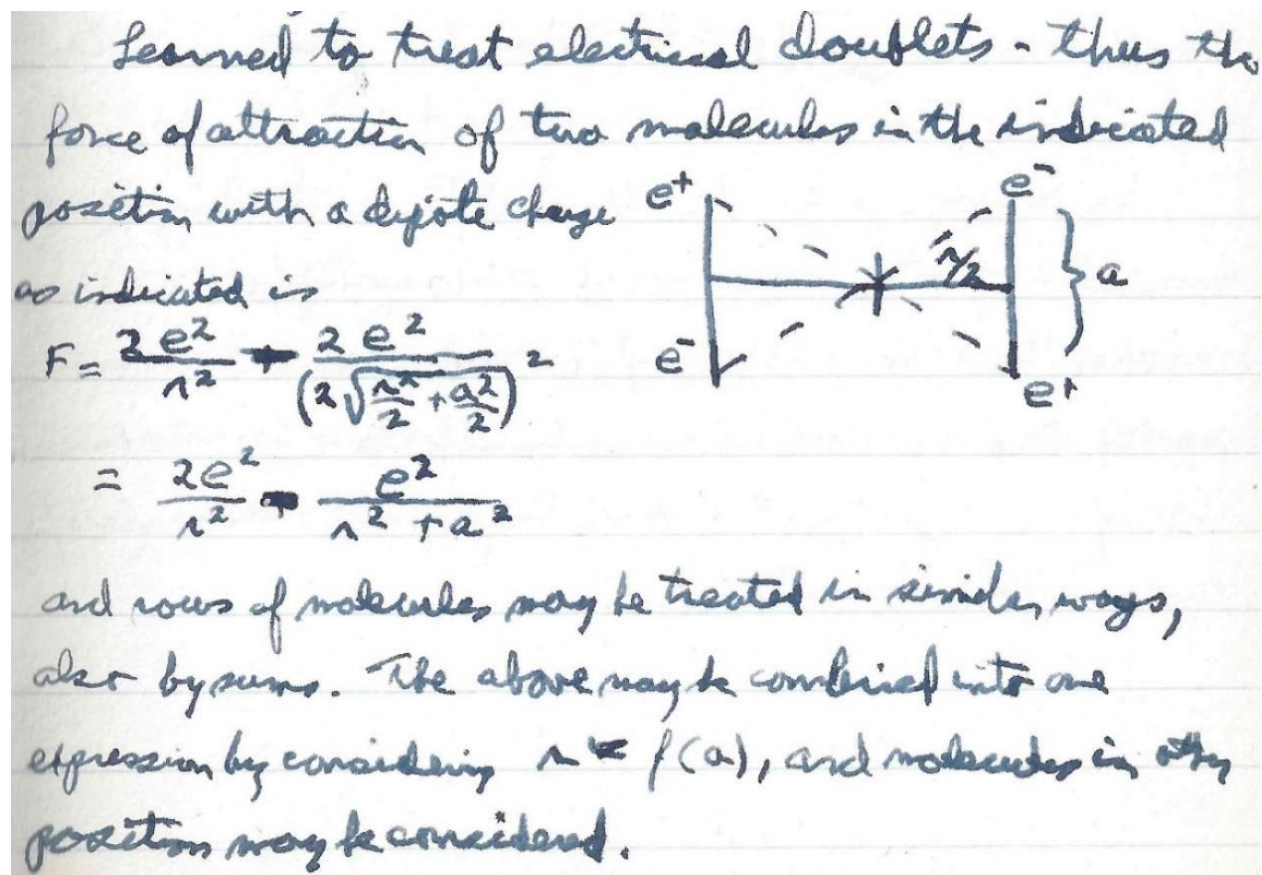 Learned to treat electrical doublets - thus the
force of attraction of two molecules in the indicated
position with a dipole charge
as indicated is
e⁺ e⁻
r/2 a
e⁻ e⁺
F = 2e²/r² - 2e²/(2√(r²/2 + a²/2))²
= 2e²/r² - e²/(r² + a²)
and rows of molecules may be treated in similar ways,
also by sums. The above may be combined into one
expression by considering r = f(a), and molecules in other
position may be considered.